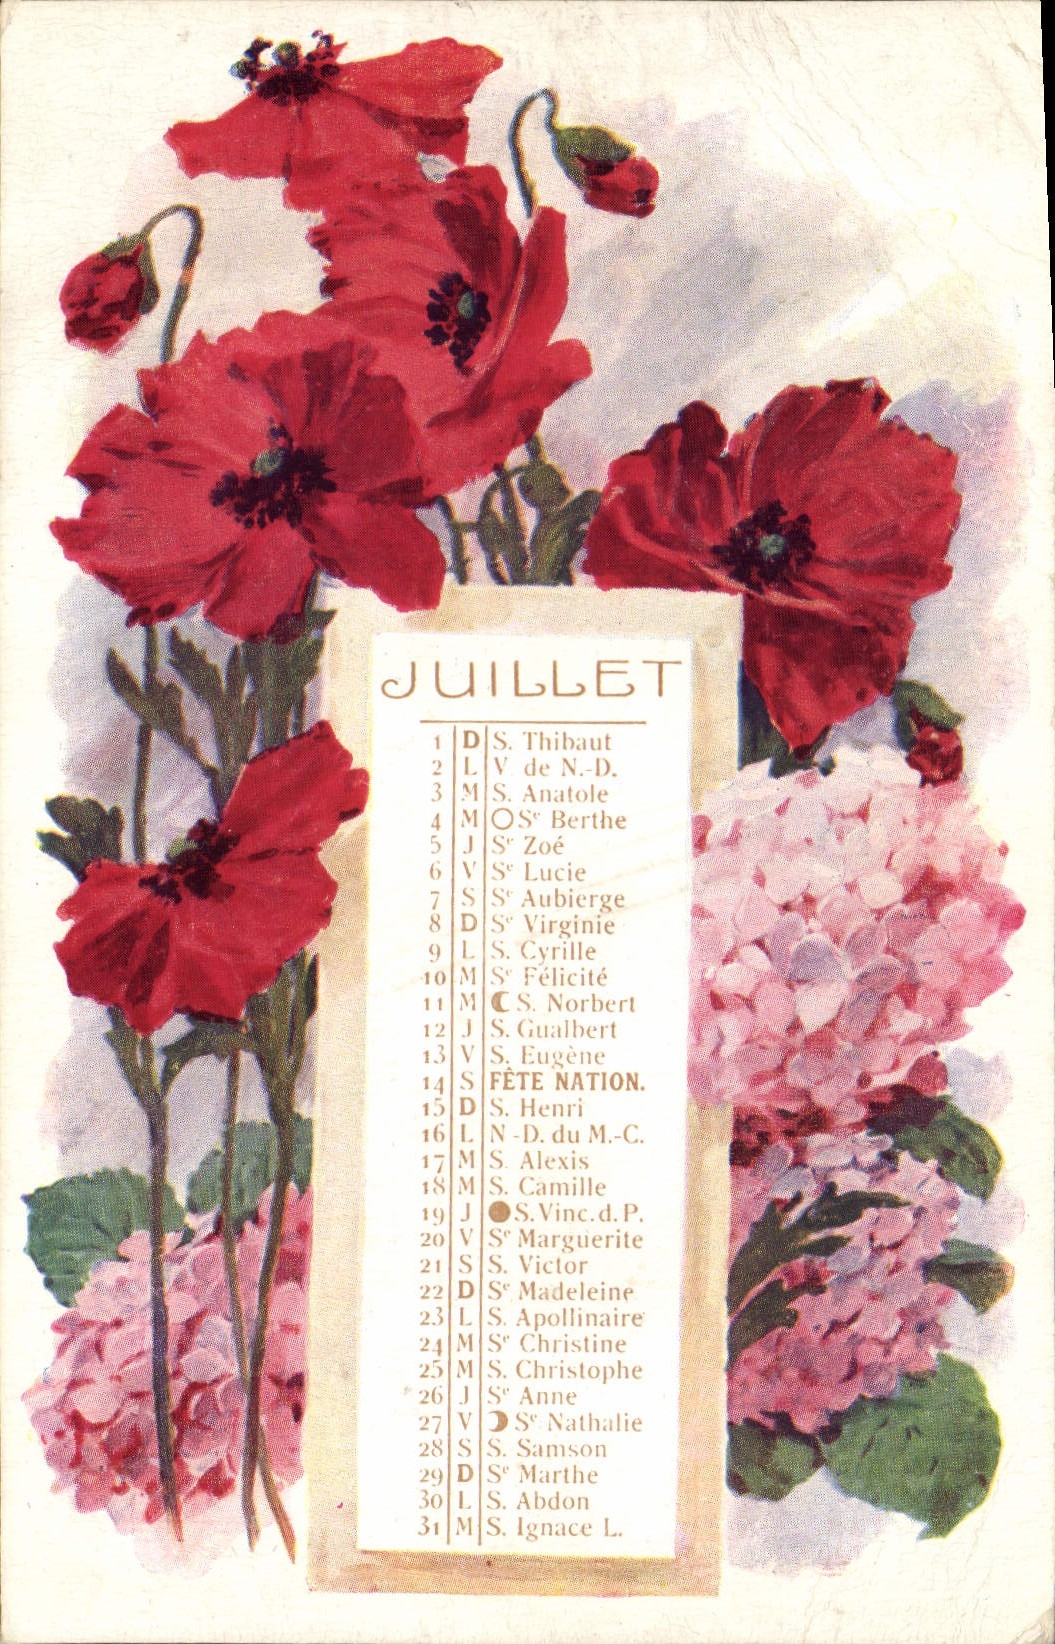 JUILLET
1 D S. Thibaut
2 L V. de N.-D.
3 M S. Anatole
4 M Sᵉ Berthe
5 J Sᵉ Zoé
6 V Sᵉ Lucie
7 S Sᵉ Aubierge
8 D Sᵉ Virginie
9 L S. Cyrille
10 M Sᵉ Félicité
11 M S. Norbert
12 J S. Gualbert
13 V S. Eugène
14 S FÊTE NATION.
15 D S. Henri
16 L N-D. du M.-C.
17 M S. Alexis
18 M S. Camille
19 J S. Vinc. d. P.
20 V Sᵉ Marguerite
21 S S. Victor
22 D Sᵉ Madeleine
23 L S. Apollinaire
24 M Sᵉ Christine
25 M S. Christophe
26 J Sᵉ Anne
27 V Sᵉ Nathalie
28 S S. Samson
29 D Sᵉ Marthe
30 L S. Abdon
31 M S. Ignace L.